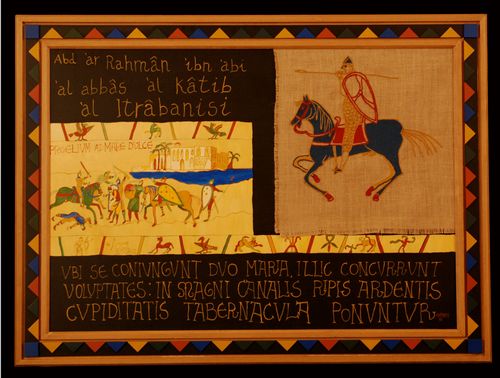 Abd 'ar Rahmân 'ibn 'abi
'al abbâs 'al kâtib
'al Itrâbanisi
PROELIUM AD MARE DULCE
UBI SE CONIUNGUNT DUO MARIA, ILLIC CONCURRUNT
VOLUPTATES: IN MAGNI CANALIS RIPIS ARDENTIS
CUPIDITATIS TABERNACULA PONUNTUR